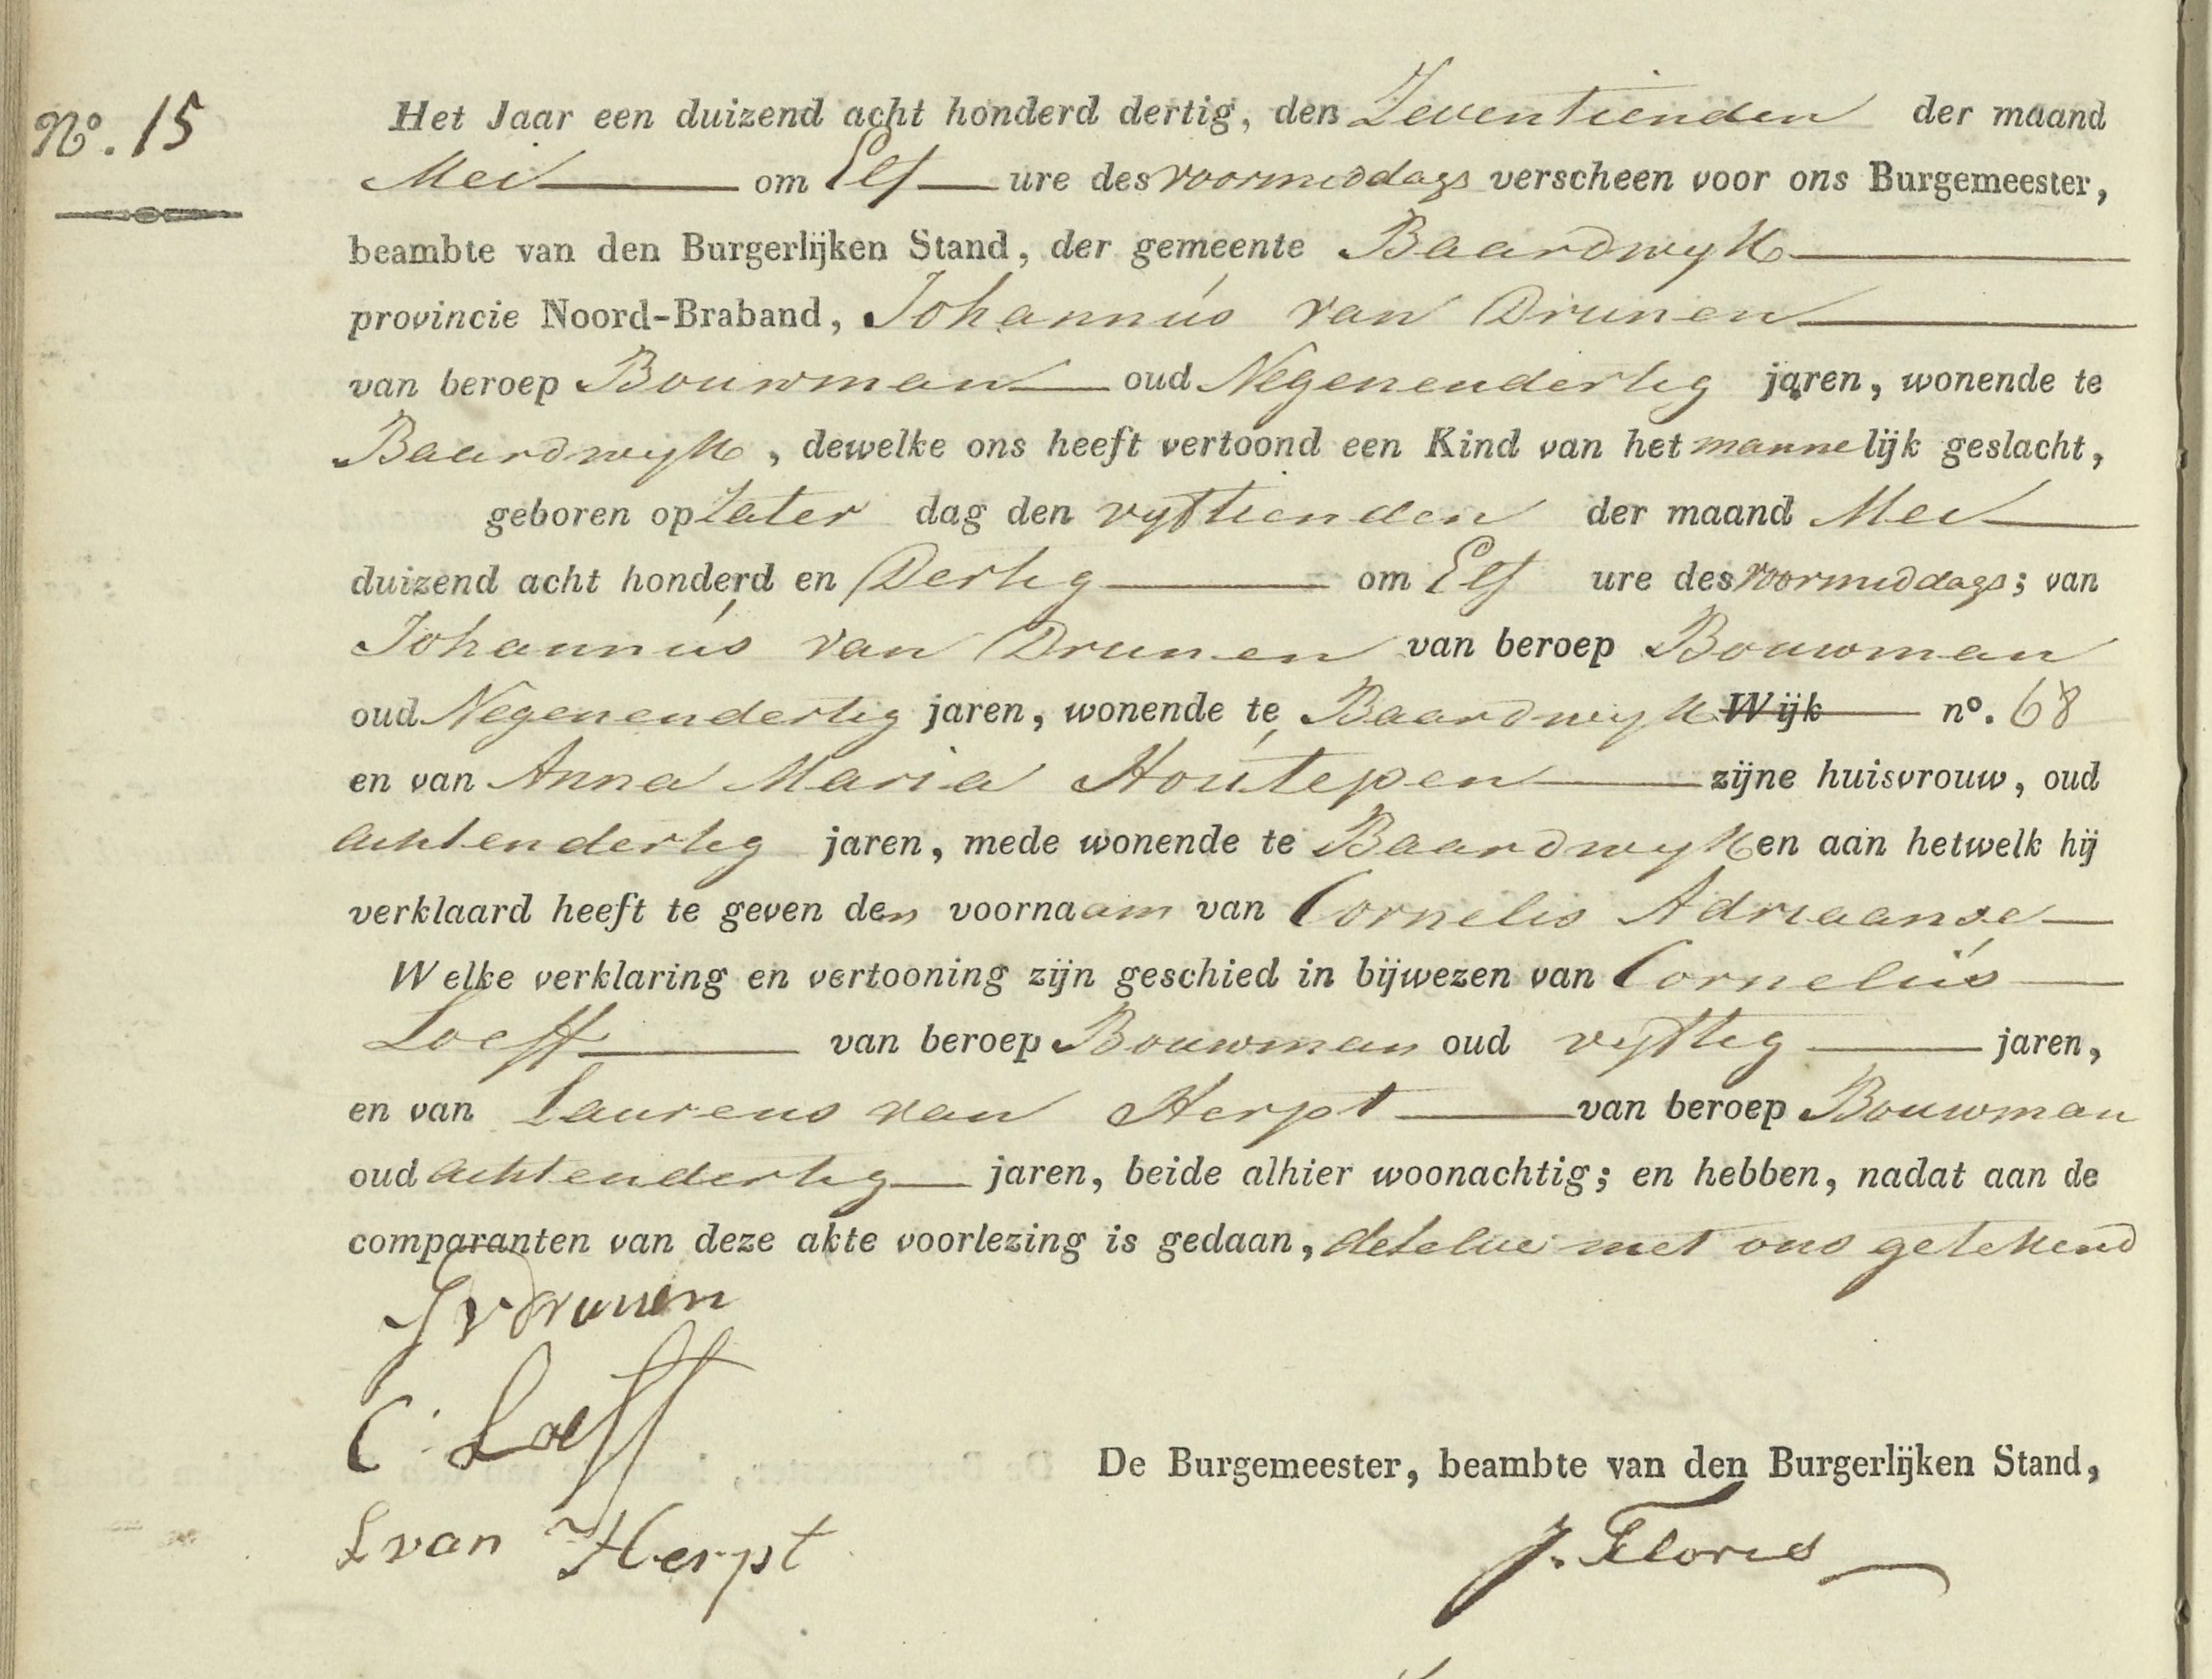 Nº. 15
Het Jaar een duizend acht honderd dertig, den Zeventienden der maand
Mei om Elf ure des voormiddags verscheen voor ons Burgemeester,
beambte van den Burgerlijken Stand, der gemeente Baardwyk
provincie Noord-Braband, Johannus van Drunen
van beroep Bouwman oud Negenendertig jaren, wonende te
Baardwyk, dewelke ons heeft vertoond een Kind van het mannelijk geslacht,
geboren op Zater dag den vyftienden der maand Mei
duizend acht honderd en Dertig om Elf ure des voormiddags; van
Johannus van Drunen van beroep Bouwman
oud Negenendertig jaren, wonende te Baardwyk Wijk nº. 68
en van Anna Maria Houtepen zijne huisvrouw, oud
achtendertig jaren, mede wonende te Baardwyk en aan hetwelk hij
verklaard heeft te geven den voornaam van Cornelis Adriaanse
Welke verklaring en vertooning zijn geschied in bijwezen van Cornelius
Loeff van beroep Bouwman oud vyftig jaren,
en van Laurens van Herpt van beroep Bouwman
oud achtendertig jaren, beide alhier woonachtig; en hebben, nadat aan de
comparanten van deze akte voorlezing is gedaan, dezelve met ons getekend
J v Drunen
C. Loeff
L van Herpt
De Burgemeester, beambte van den Burgerlijken Stand,
J. Floris